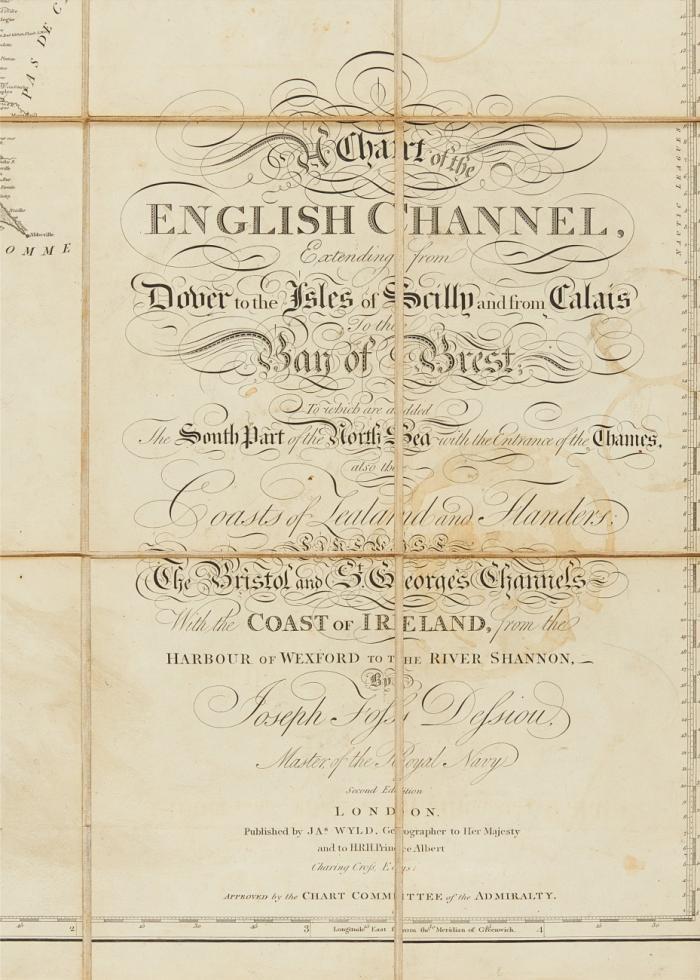 PAS DE C
Abbeville
OMME
NAUTIC LEAGUES
A Chart of the
ENGLISH CHANNEL,
Extending from
Dover to the Isles of Scilly and from Calais
To the
Bay of Brest;
To which are added
The South Part of the North Sea with the Entrance of the Thames,
also the
Coasts of Zealand and Flanders;
LIKEWISE
The Bristol and St. George's Channels
With the COAST OF IRELAND, from the
HARBOUR OF WEXFORD TO THE RIVER SHANNON,
By
Joseph Foſs Deſsiou.
Master of the Royal Navy
Second Edition
LONDON.
Published by JAs. WYLD, Geographer to Her Majesty
and to H.R.H. Prince Albert
Charing Croſs, East
APPROVED by the CHART COMMITTEE of the ADMIRALTY.
2 3 Longitude East from the Meridian of Greenwich. 4